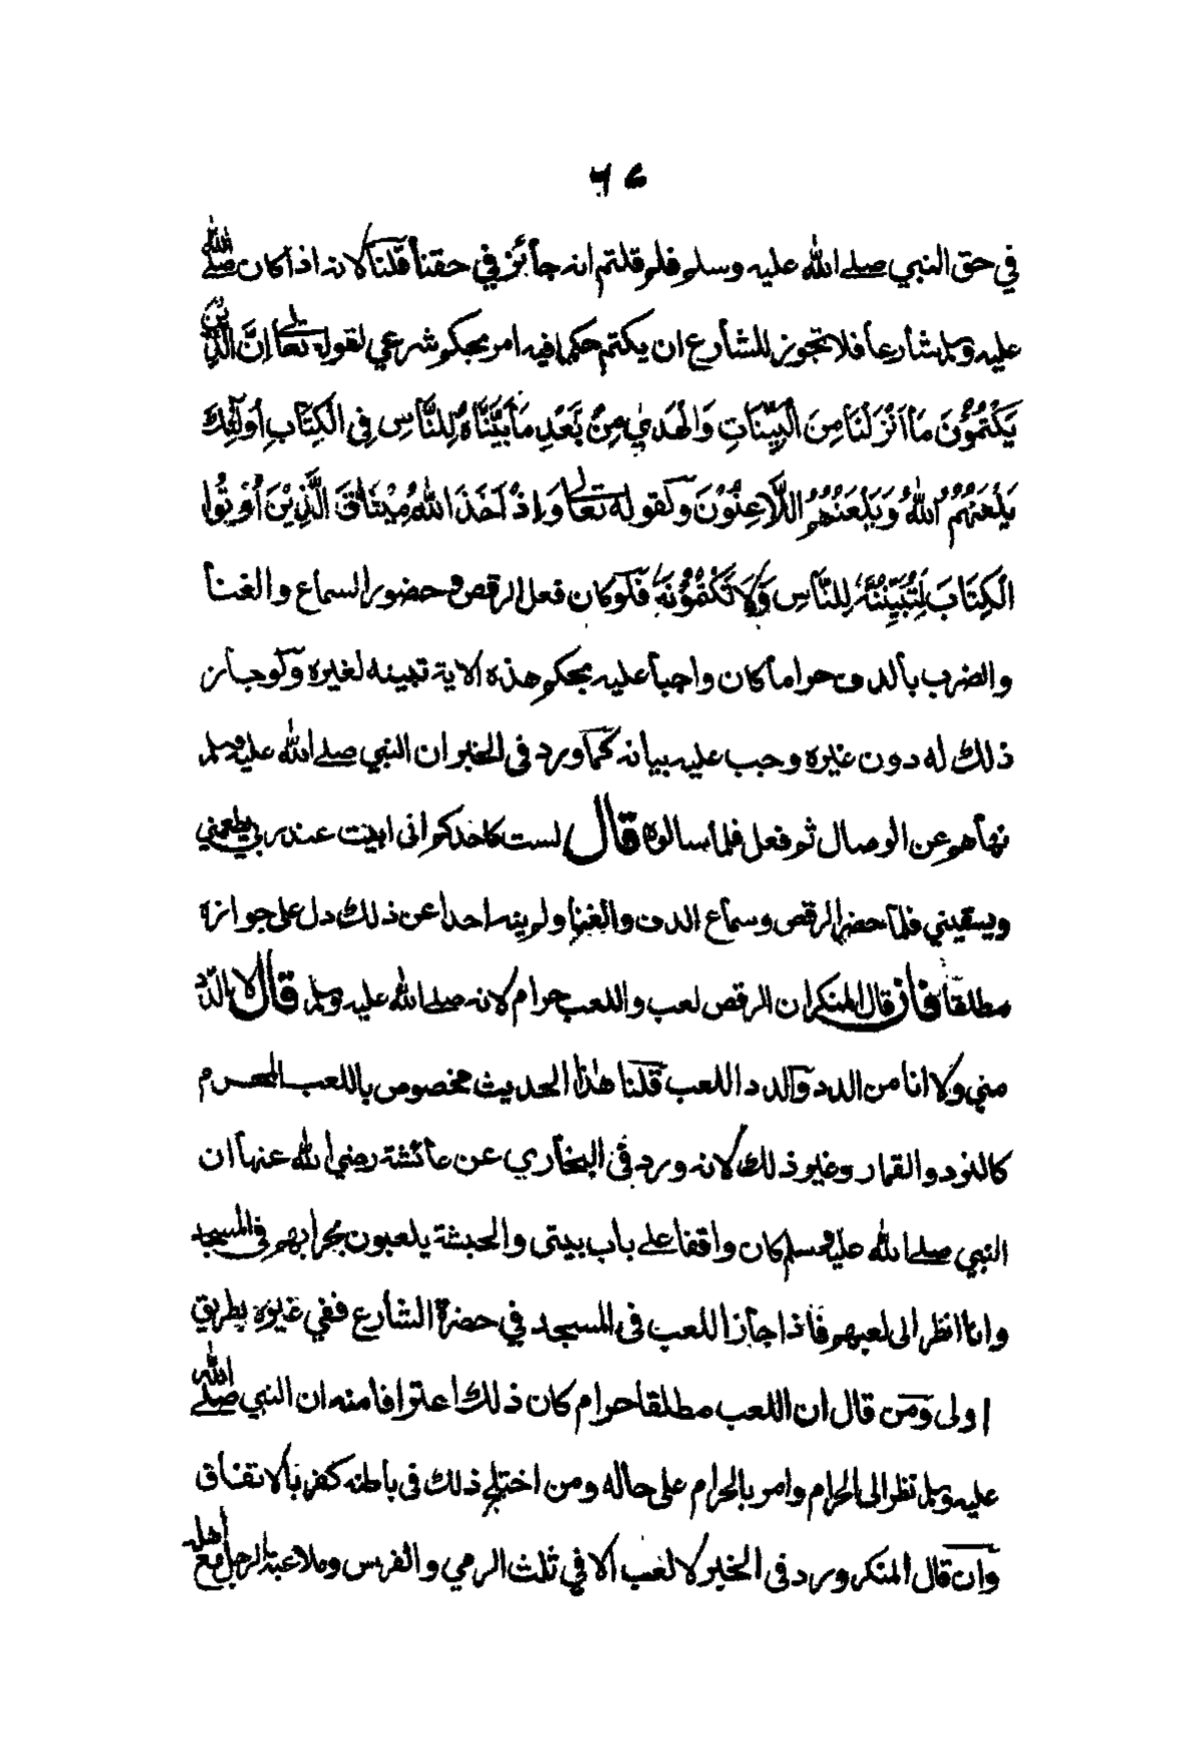 ٧٤
في حق النبي صلے الله عليه وسلم فلم قلتم انه جائز في حقنا قلنا لانه اذا كان صلے الله
عليه وسلم شارعا فلا تجوز للشارع ان يكتم حكما فيه امر بحكم شرعي لقوله تعالے اِنَّ الَّذِيْنَ
يَكْتُمُوْنَ مَا اَنْزَلْنَا مِنَ الْبَيِّنَاتِ وَالْهُدٰي مِنْ بَعْدِ مَا بَيَّنَّاهُ لِلنَّاسِ فِي الْكِتَابِ اُولٰٓئِكَ
يَلْعَنُهُمُ اللّٰهُ وَيَلْعَنُهُمُ اللَّاعِنُوْنَ وكقوله تعالے وَاِذْ اَخَذَ اللّٰهُ مِيْثَاقَ الَّذِيْنَ اُوْتُوا
الْكِتَابَ لَتُبَيِّنُنَّهٗ لِلنَّاسِ وَلَا تَكْتُمُوْنَهٗ فلو كان فعل الرقص وحضور السماع والغنا
والضرب بالدف حراما كان واجبا عليه بحكم هذه الاية تبيينه لغيره ولو جاز
ذلك له دون غيره وجب عليه بيانه كما ورد في الخبر ان النبي صلے الله عليه وسلم
نهاهم عن الوصال ثم فعل فلما سالوه قال لست كاحدكم اني ابيت عند ربي يطعمني
ويسقيني فلما حضر الرقص وسماع الدف والغنا ولم ينه احدا عن ذلك دل على جوازه
مطلقا فان قال المنكر ان الرقص لعب واللعب حرام لانه صلے الله عليه وسلم قال لا الدد
مني ولا انا من الدد والدد اللعب قلنا هذا الحديث مخصوص باللعب المحرم
كالنرد والقمار وغير ذلك لانه ورد في البخاري عن عائشة رضي الله عنها ان
النبي صلے الله عليه وسلم كان واقفا علے باب بيتي والحبشة يلعبون بحرابهم في المسجد
وانا انظر الى لعبهم فاذا جاز اللعب في المسجد في حضرة الشارع ففي غيره بطريق
اولى ومن قال ان اللعب مطلقا حرام كان ذلك اعترافا منه ان النبي صلے الله
عليه وسلم نظر الى الحرام وامر بالحرام على حاله ومن اختلج ذلك في باطنه كفر بالاتفاق
وان قال المنكر ورد في الخبر لا لعب الا في ثلث الرمي والفرس وملاعبة الرجل مع اهله